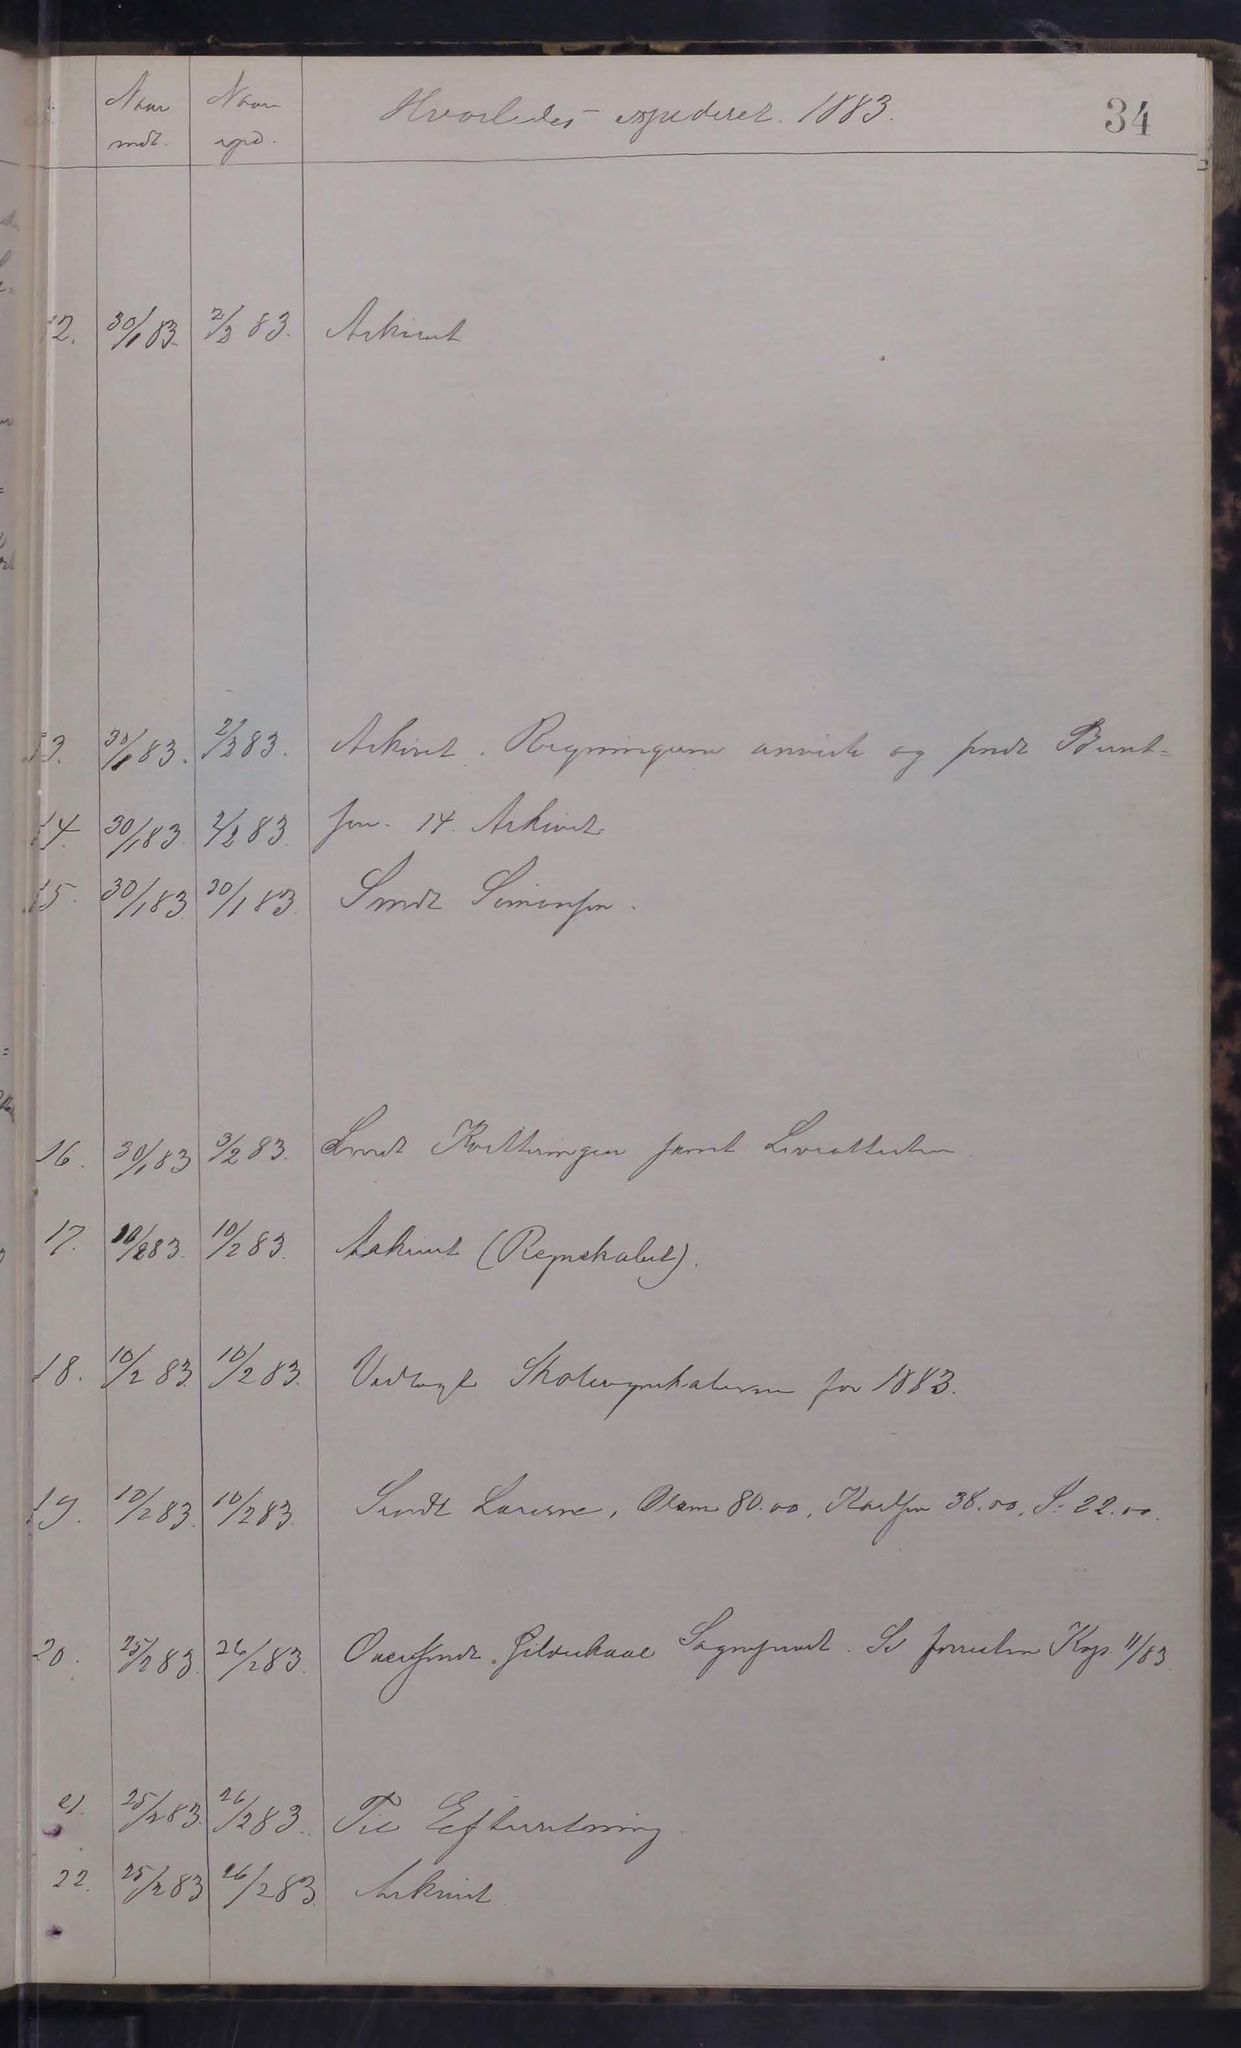 Naar Naar Hvorledes expederet. 1883. 34
indt. expd.
12. 30/1 83. 2/2 83. Arkivet
13. 30/1 83. 2/2 83. Arkivet. Regningerne anviste og sendt Bernt=
14. 30/1 83. 2/2 83. sen. 14. Arkivet
15. 30/1 83 30/1 83. Sendt Simonsen.
16. 30/1 83 3/2 83. Sendt Kvitteringen samt Leveattesten
17. 10/2 83. 10/2 83. Arkivet (Regnskabet).
18. 10/2 83. 10/2 83. Vedlagt Skoleregnskaberne for 1883.
19. 10/2 83. 10/2 83. Sendt Lærerne, Olsen 80.00, Karlsen 38.00, S. 22.00.
20. 25/2 83. 26/2 83. Oversendt Gildeskaal Sognepræst. Se Kop. 11/83
21. 25/2 83. 26/2 83. Til Efterretning.
22. 25/2 83 26/2 83. Arkivet